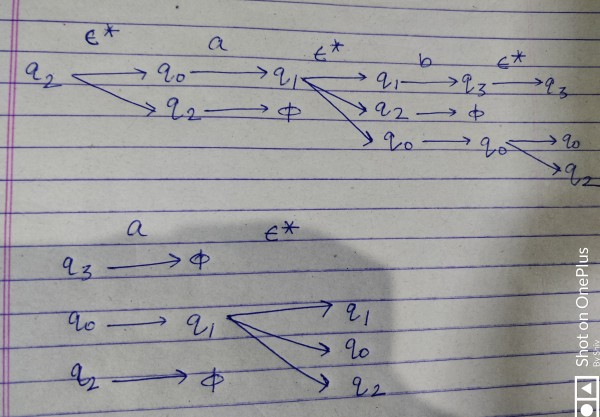 ϵ* a ϵ* b ϵ*
q2 → q0 → q1 → q1 → q3 → q3
q2 → ϕ q2 → ϕ
q0 → q0 → q0
q2
a ϵ*
q3 → ϕ
q0 → q1 → q1
q0
q2 → ϕ q2
Shot on OnePlus
By Shiv